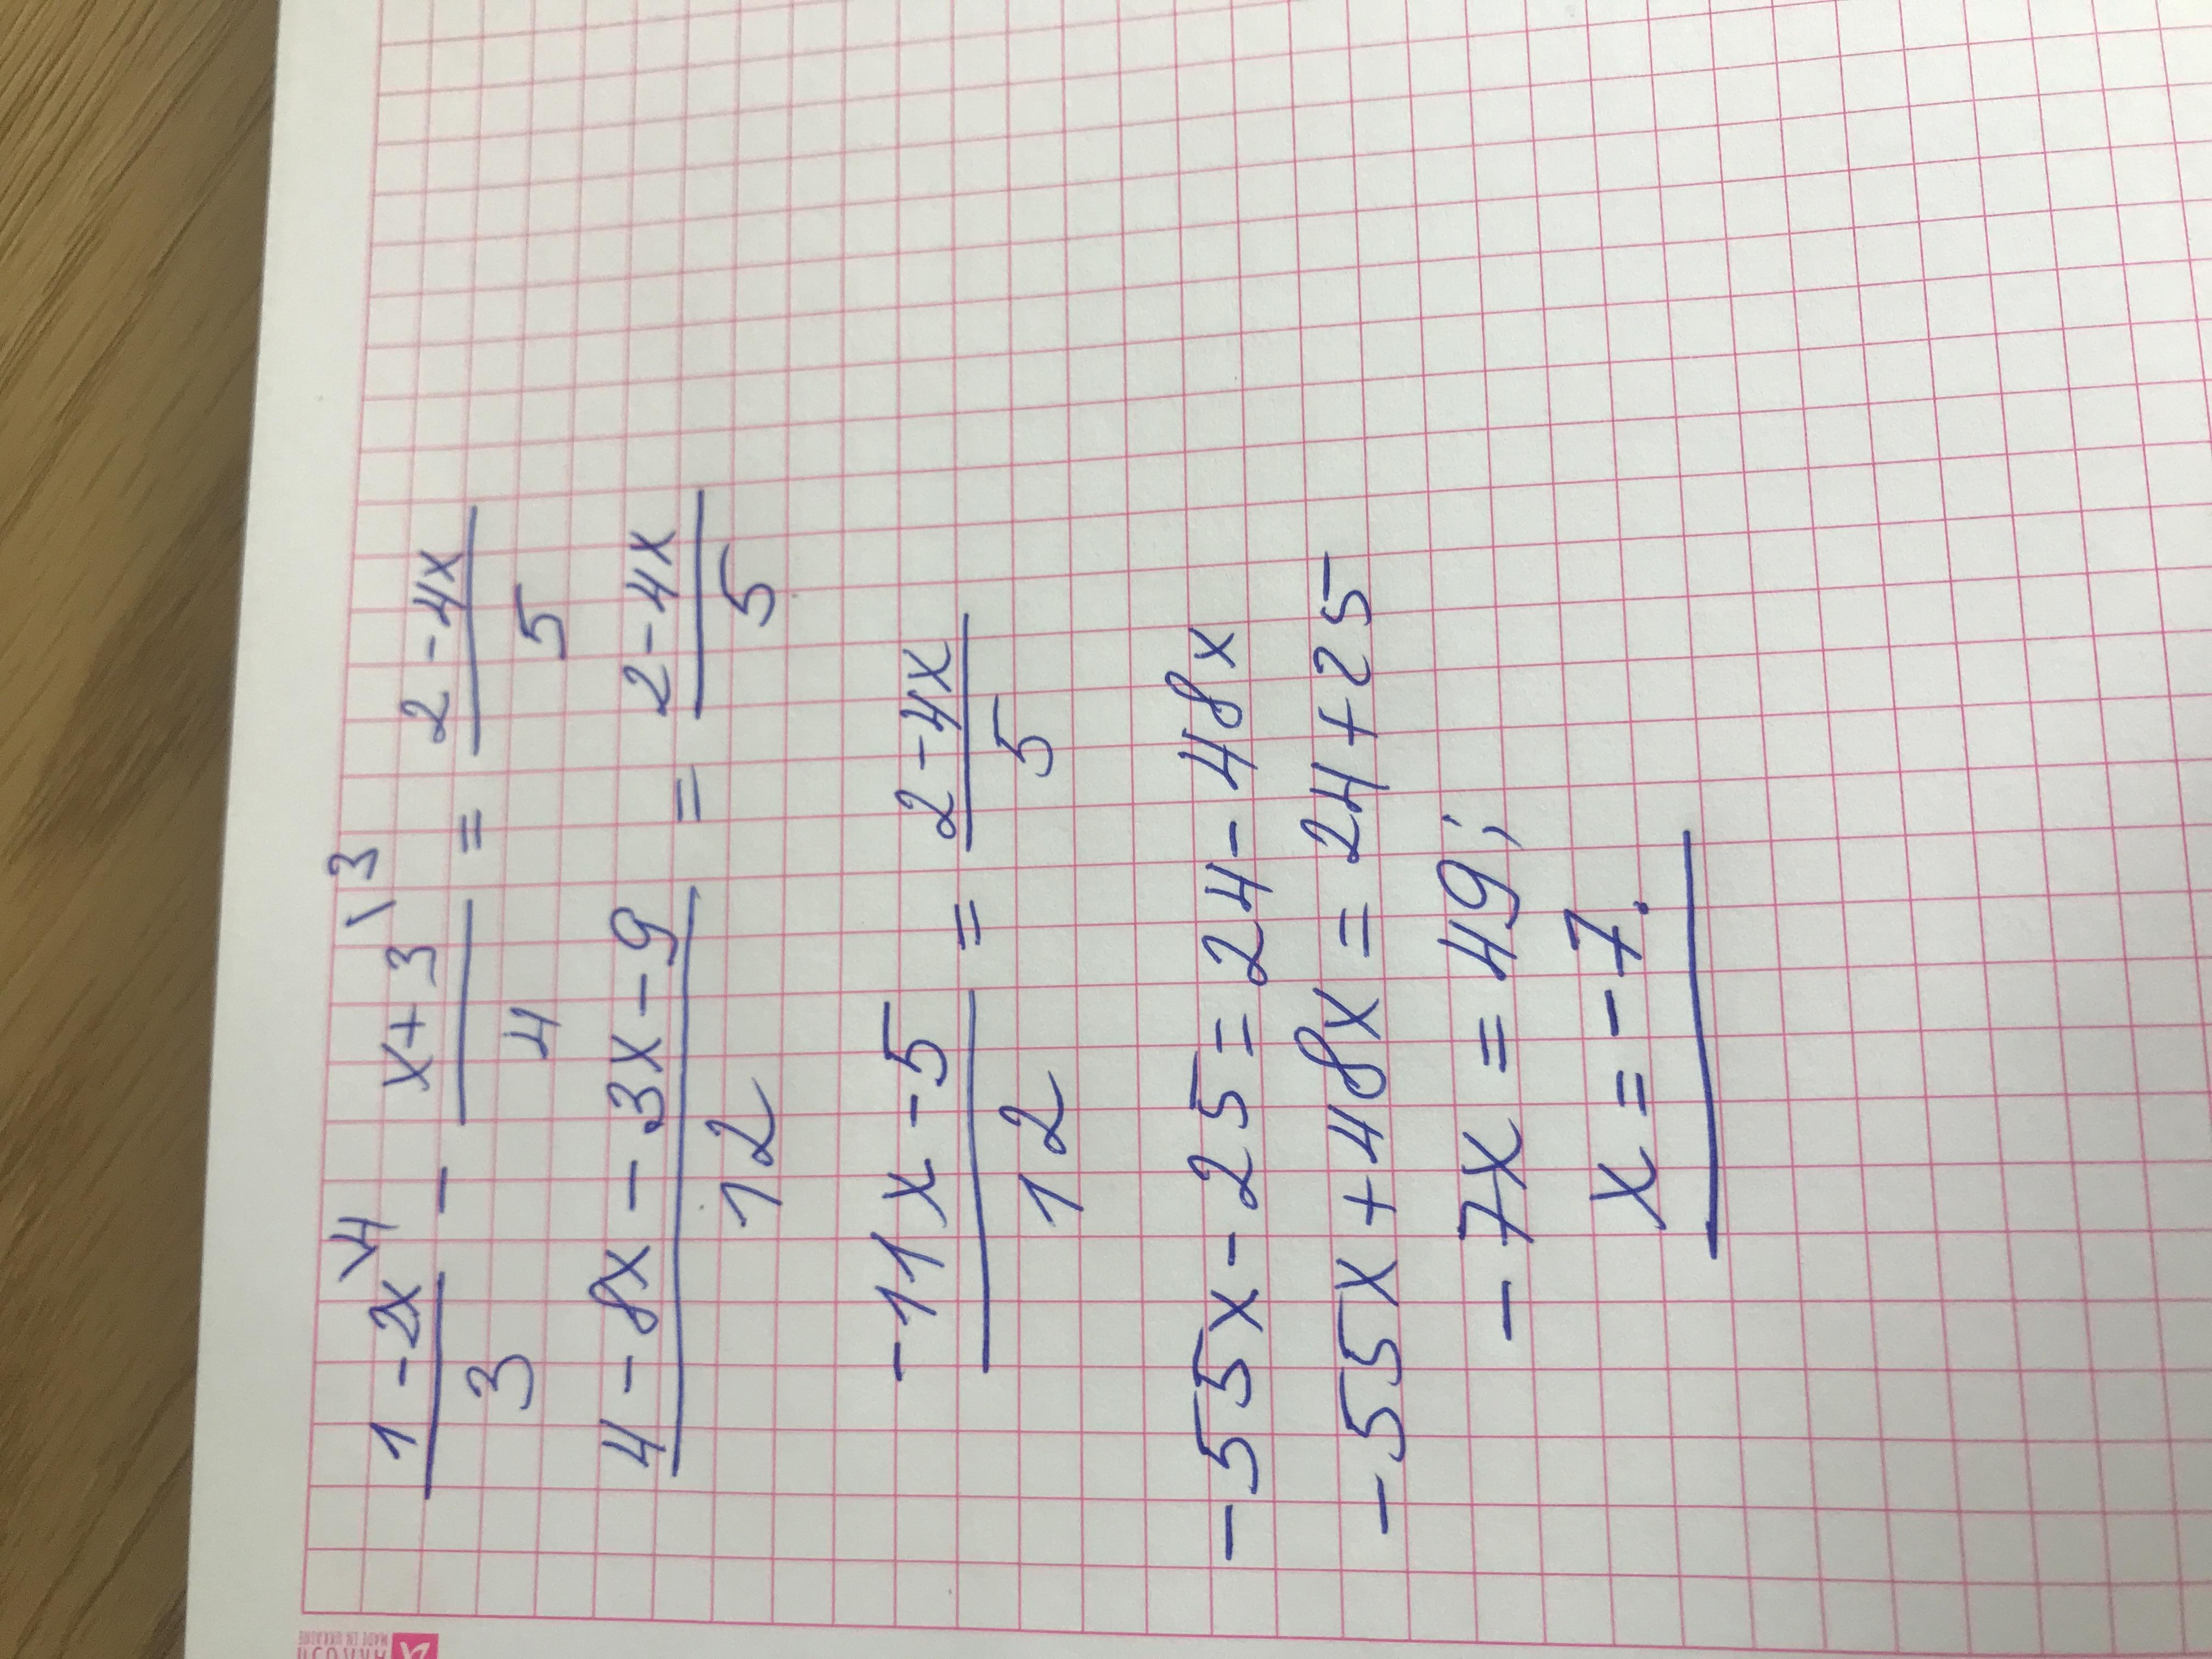 (1-2x)/3 \4 - (x+3)/4 \3 = (2-4x)/5
(4-8x-3x-9)/12 = (2-4x)/5
(-11x-5)/12 = (2-4x)/5
-55x-25=24-48x
-55x+48x=24+25
-7x=49;
x=-7.
MADE IN UKRAINE